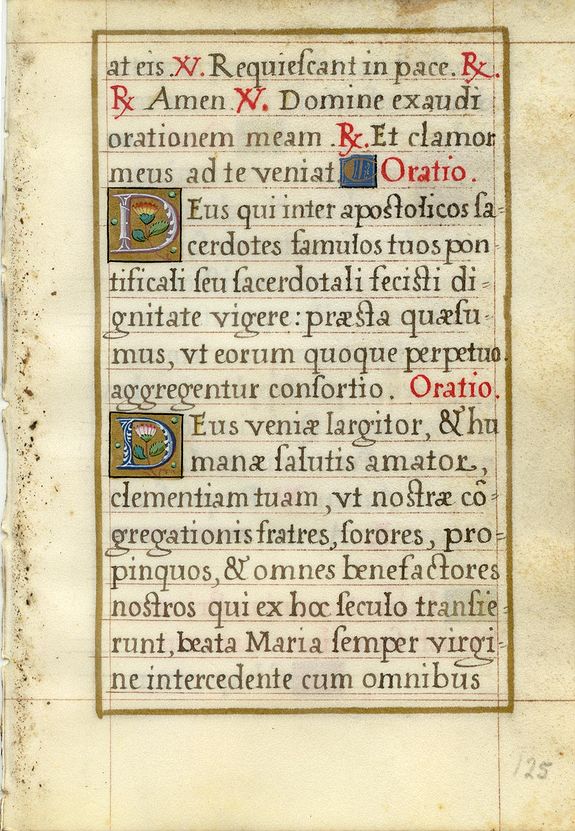 at eis. ℣. Requieſcant in pace. ℟.
℟ Amen ℣. Domine exaudi
orationem meam . ℟. Et clamor
meus ad te veniat Oratio.
DEus qui inter apoſtolicos ſa-
cerdotes famulos tuos pon
tificali ſeu ſacerdotali feciſti di-
gnitate vigere: præſta quæſu-
mus, vt eorum quoque perpetuo
aggregentur conſortio. Oratio.
DEus veniæ largitor, & hu
manæ ſalutis amator,
clementiam tuam, vt noſtræ cõ-
gregationis fratres, ſorores, pro-
pinquos, & omnes benefactores
noſtros qui ex hoc ſeculo tranſie-
runt, beata Maria ſemper virgi-
ne intercedente cum omnibus
125